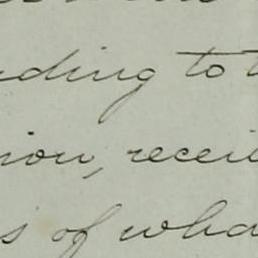 ding to t
ion, recei
s of wha